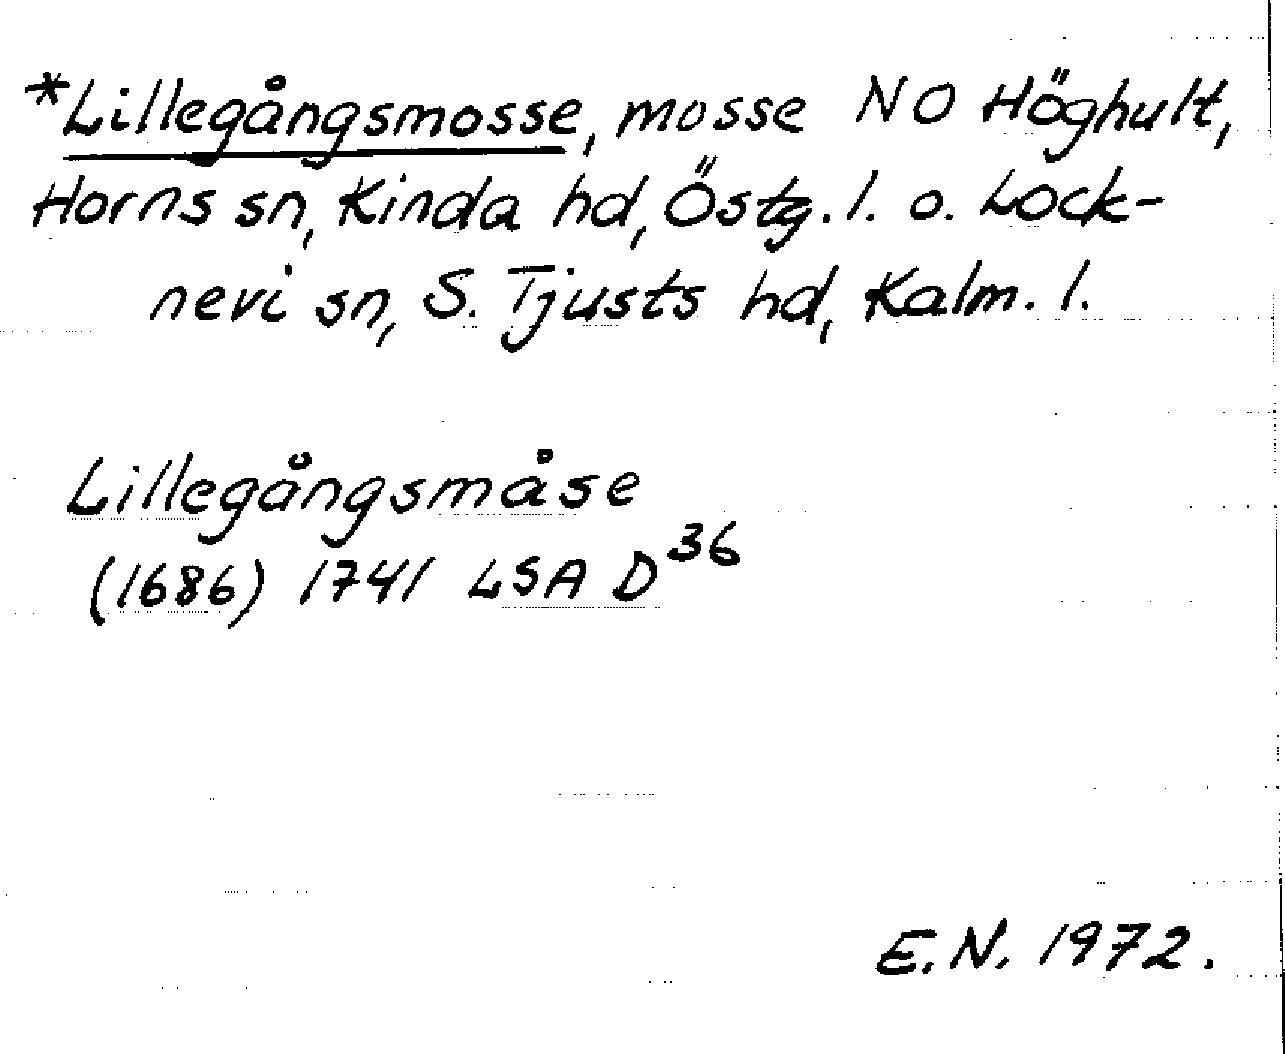 *Lillegångsmosse, mosse NO Höghult,
Horns sn, Kinda hd, Östg. l. o. Lock-
nevi sn, S. Tjusts hd, Kalm. l.
Lillegångsmåse
(1686) 1741 LSA D36
E.N. 1972.